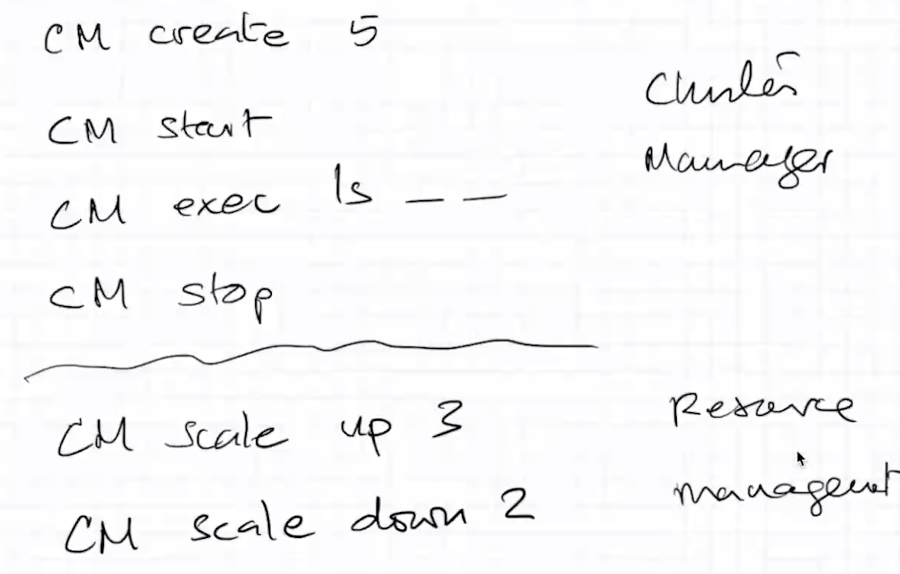 CM create 5
CM start
CM exec ls _ _
CM stop
Cluster
Manager
CM scale up 3
CM scale down 2
Resource
management